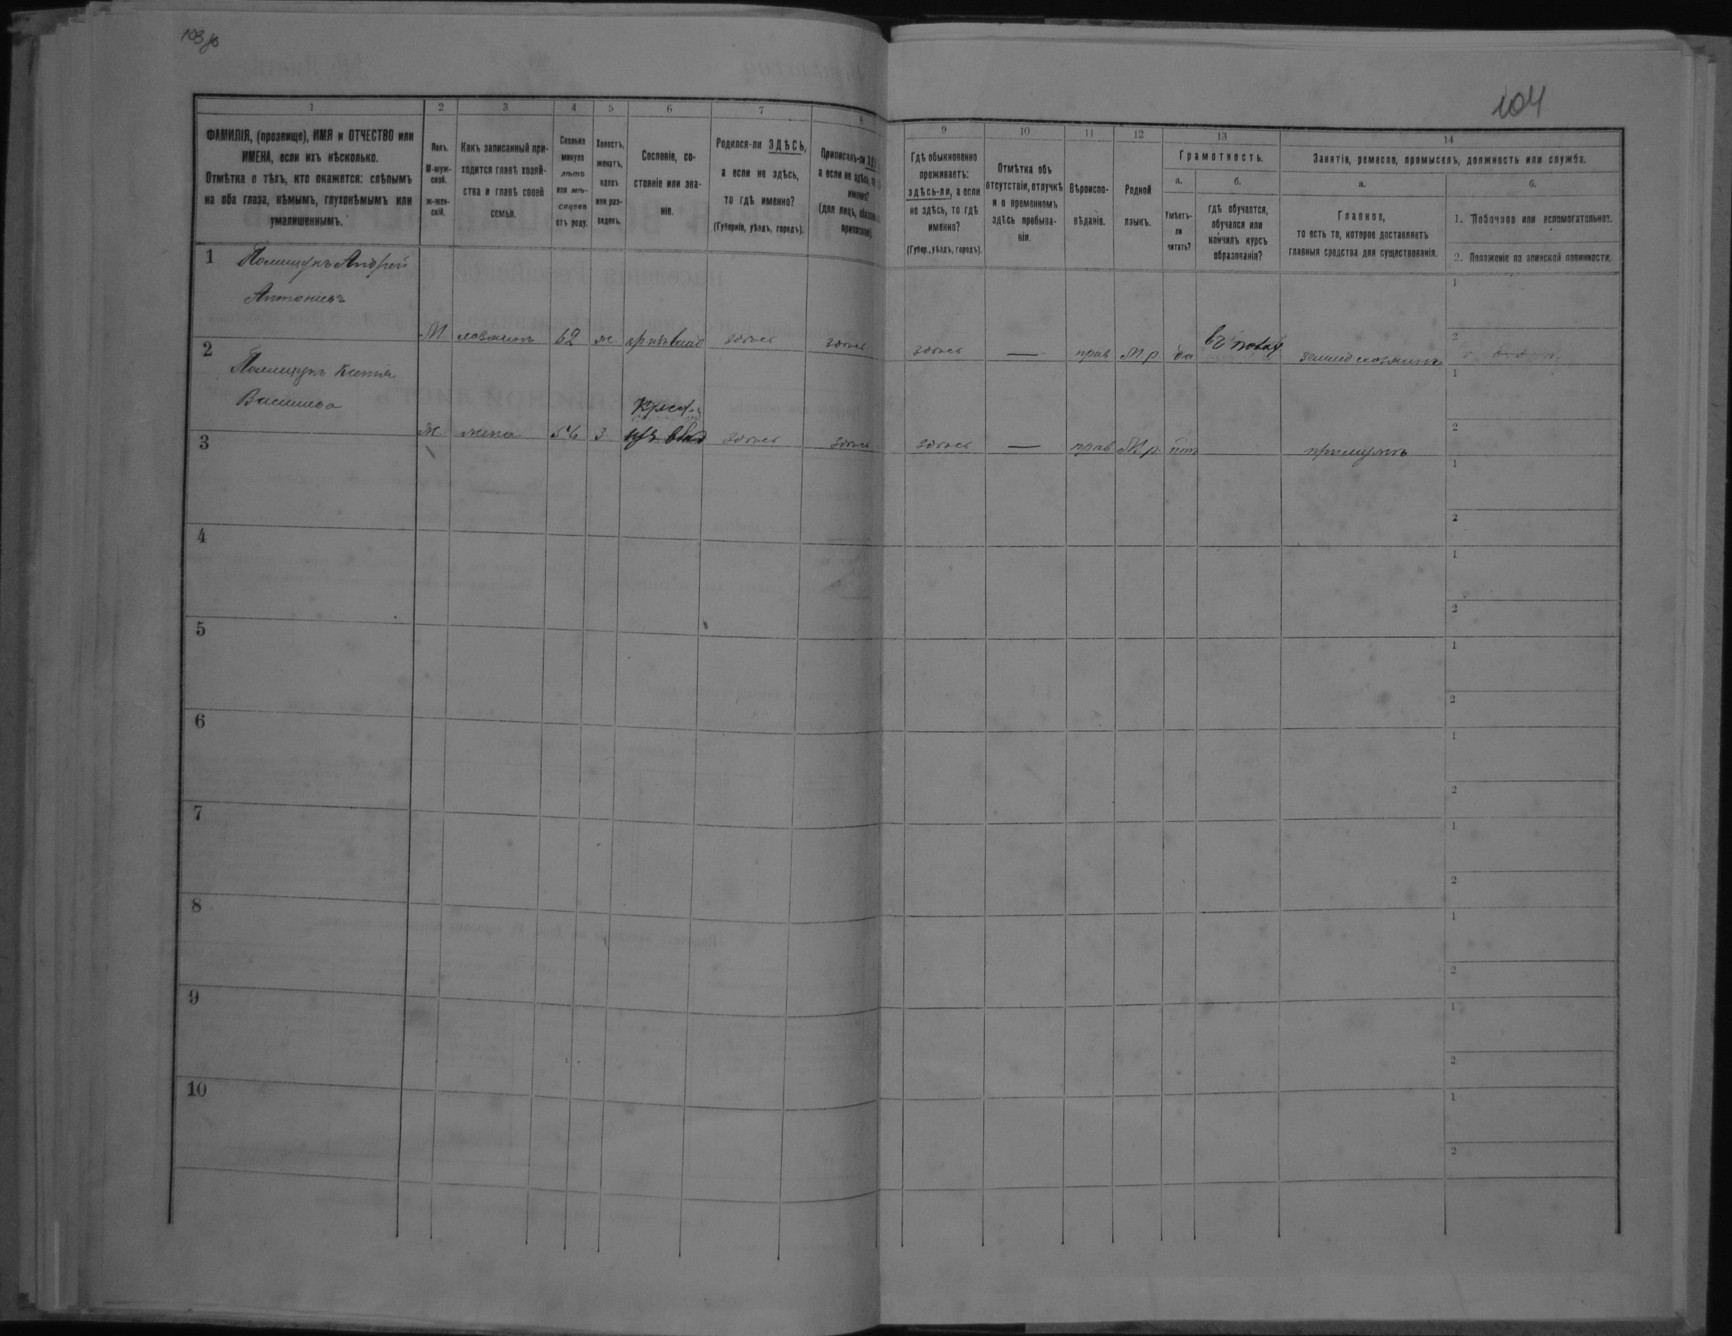 104
1
2
3
4
5
6
7
8
9
10
11
12
13
14
ФАМИЛІЯ, (прозвище), ИМЯ и ОТЧЕСТВО или
ИМЕНА, если ихъ нѣсколько.
Отмѣтка о тѣхъ, кто окажется: слѣпымъ
на оба глаза, нѣмымъ, глухонѣмымъ или
умалишеннымъ.
Полъ.
М-муж-
ской.
ж-жен-
скій.
Какъ записанный при-
ходится главѣ хозяй-
ства и главѣ своей
семьи.
Сколько
минуло
лѣтъ
или мѣ-
сяцевъ
отъ роду.
Холостъ,
женатъ,
вдовъ
или раз-
веденъ.
Сословіе, со-
стояніе или зва-
ніе.
Родился-ли ЗДѢСЬ,
а если не здѣсь,
то гдѣ именно?
(Губернія, уѣздъ, городъ).
Приписанъ-ли
а если не здѣсь,
именно?
(для лицъ,
Гдѣ обыкновенно
проживаетъ:
здѣсь-ли, а если
не здѣсь, то гдѣ
именно?
(Губер., уѣздъ, городъ).
Отмѣтка объ
отсутствіи, отлучкѣ
и о временномъ
здѣсь пребыва-
ніи.
Вѣроиспо-
вѣданіе.
Родной
языкъ.
Грамотность.
а.
Умѣетъ-
ли
читать?
б.
гдѣ обучается,
обучался или
кончилъ курсъ
образованія?
Занятія, ремесло, промыселъ, должность или служба.
а.
Главное,
то есть то, которое доставляетъ
главныя средства для существованія.
б.
1. Побочное или вспомогательное.
2. Положеніе по воинской повинности.
1 Полищукъ Андрей
Антоніевъ
М 62 ж здѣсь здѣсь здѣсь — прав М р да
2 Полищукъ Ксенія
Васильева
ж жена з здѣсь здѣсь здѣсь — прав М р нѣт
3
4
5
6
7
8
9
10
1
2
1
2
1
2
1
2
1
2
1
2
1
2
1
2
1
2
1
2